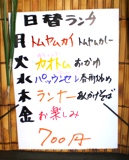 日替ランチ
月 トムヤムカイ トムヤムカレー
火 カオトム おかゆ
水 パッウンセン 春雨炒め
木 ランナー あんかけそば
金 お楽しみ
700円